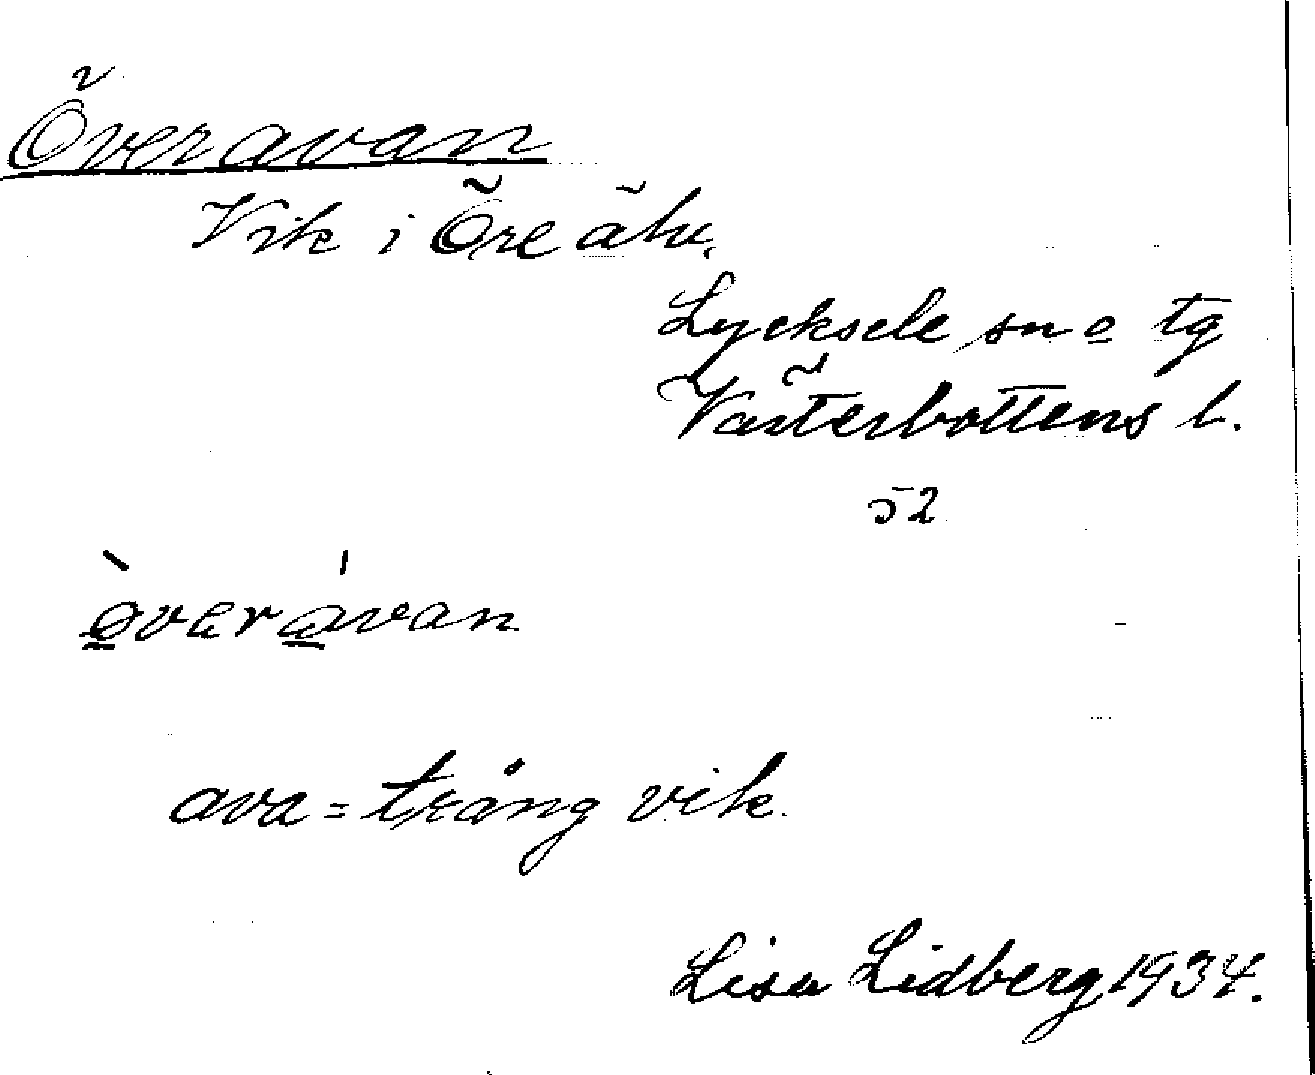 Överavan
Vik i Öre älv.
Lycksele sn o tg
Västerbottens l.
52
ò̱verá̱van
ava = trång vik.
Lisa Lidberg 1934.